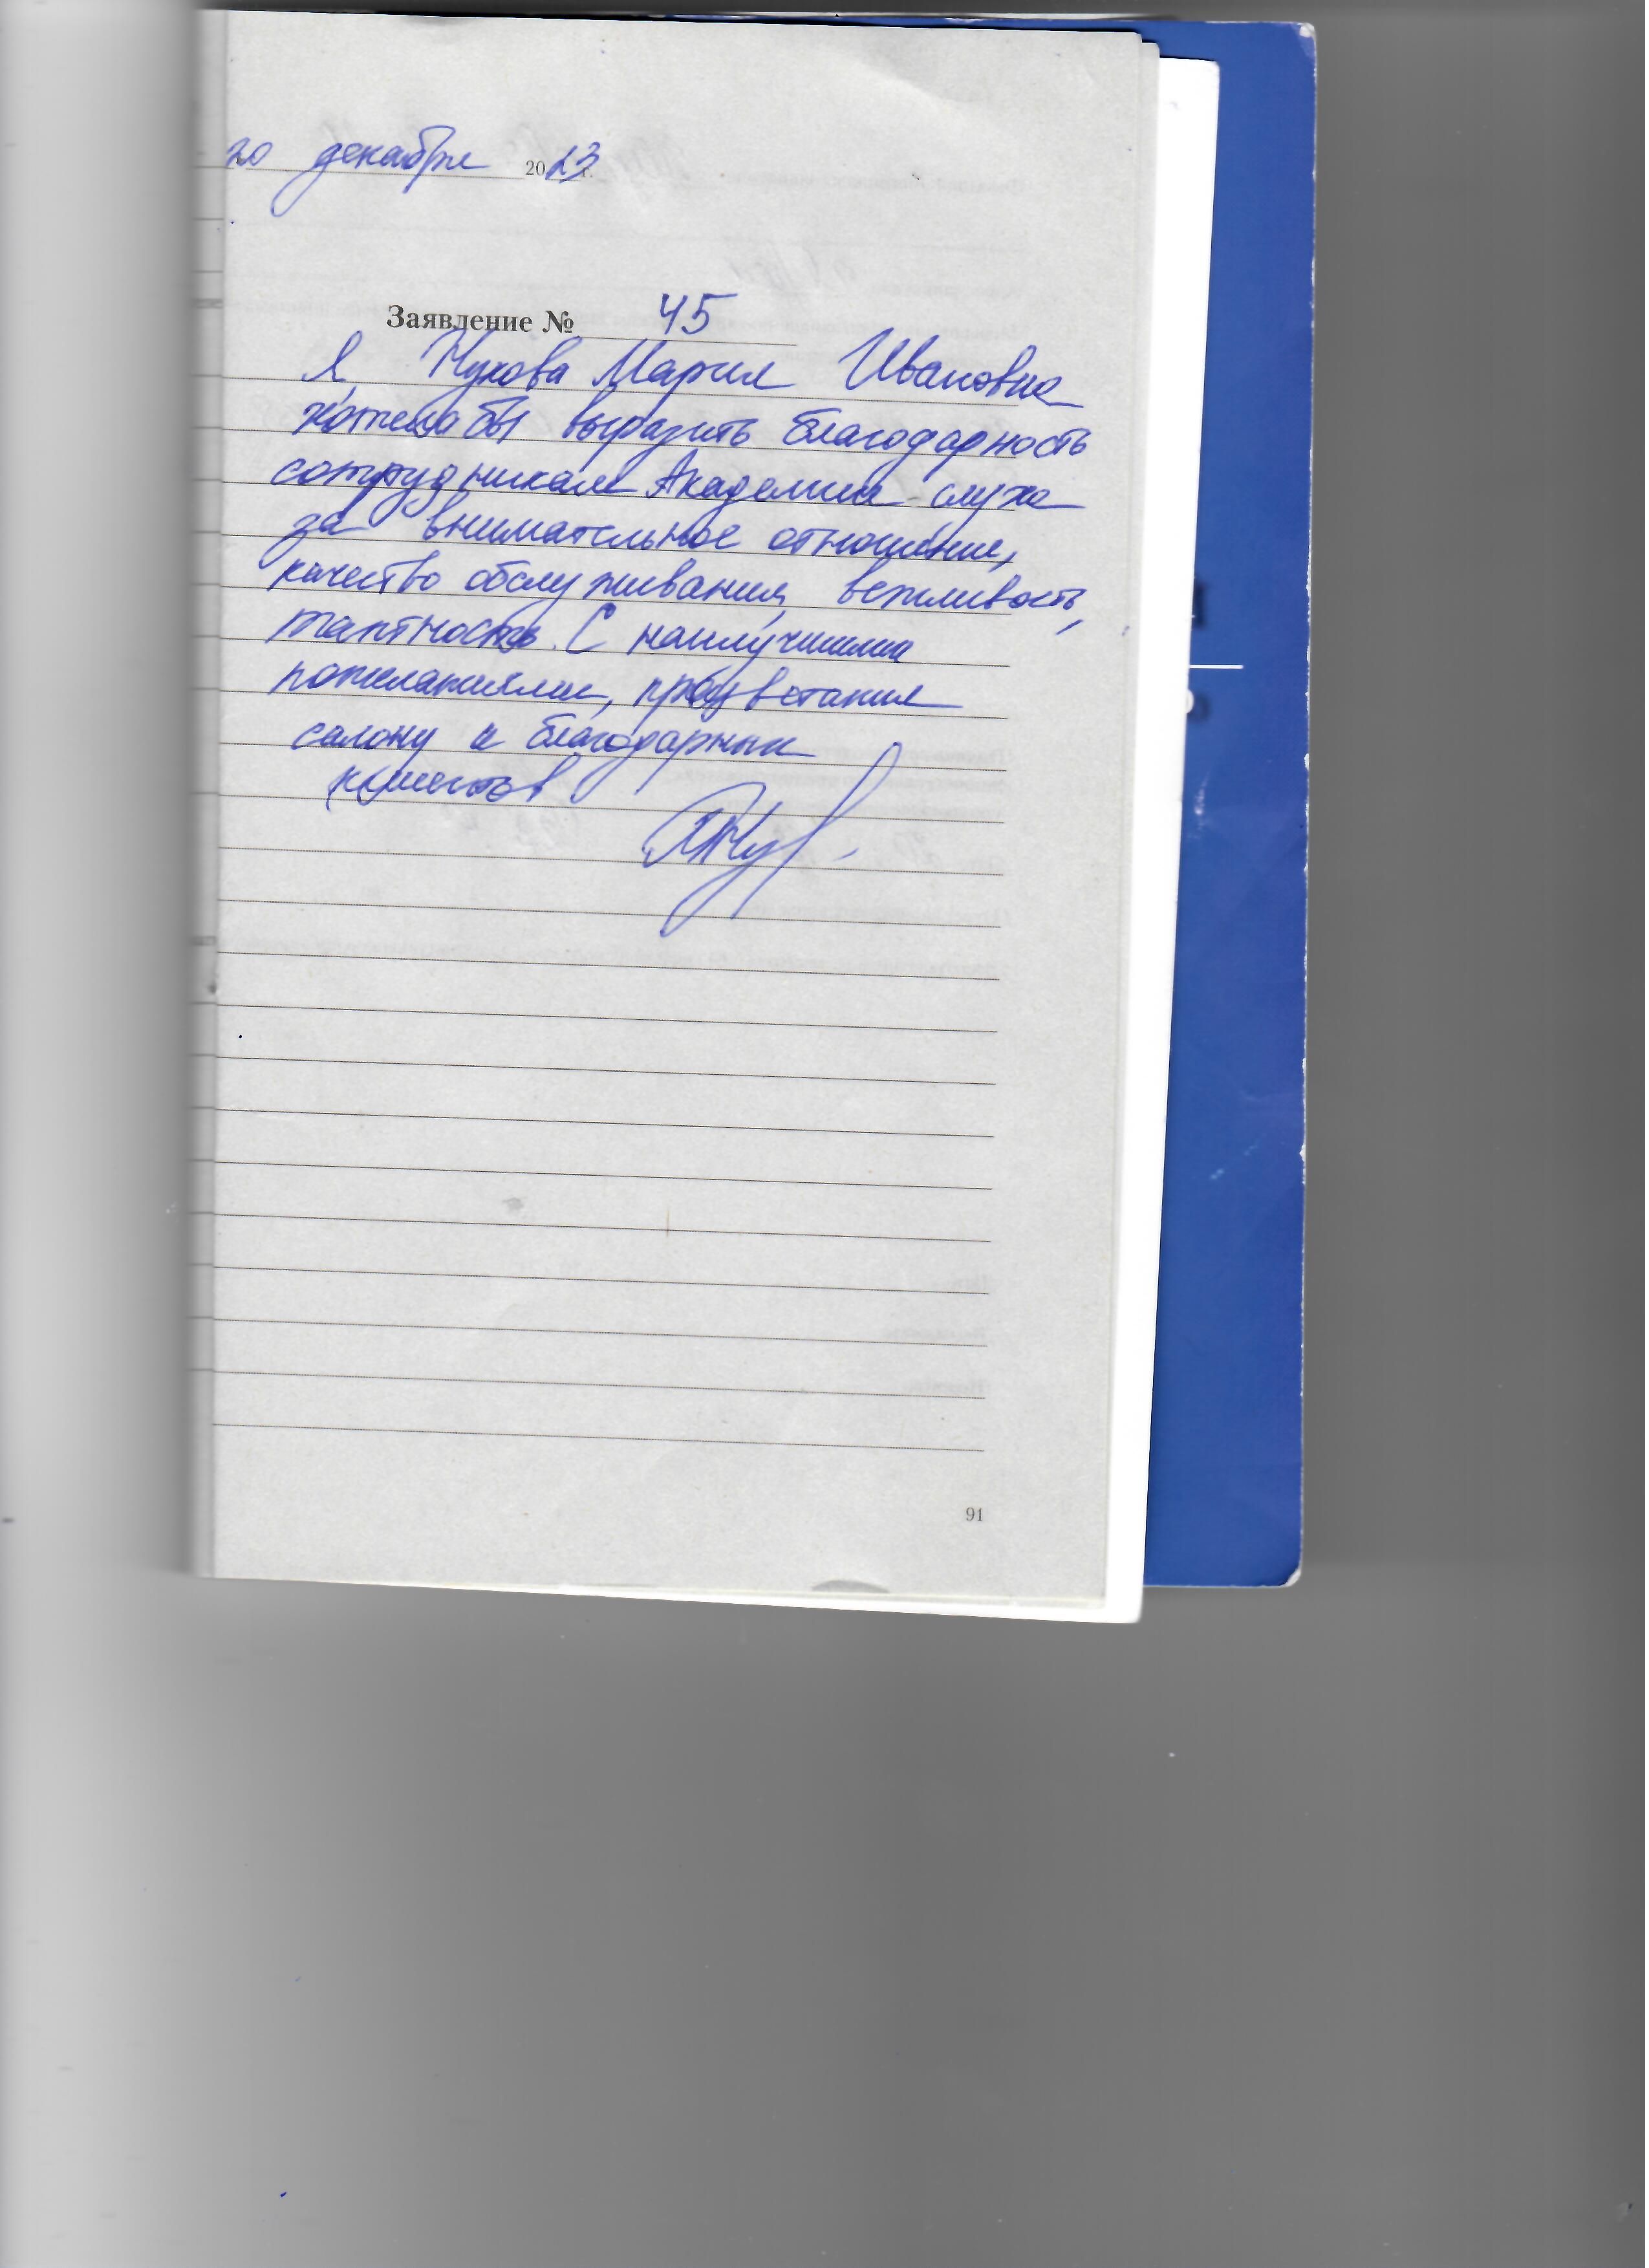 20 декабря 2023 г.
Заявление № 45
Я, Жукова Мария Ивановна
хотела бы выразить благодарность
сотрудникам Академии слуха
за внимательное отношение,
качество обслуживания, вежливость,
тактность. С наилучшими
пожеланиями, процветания
салону и благодарных
клиентов
91